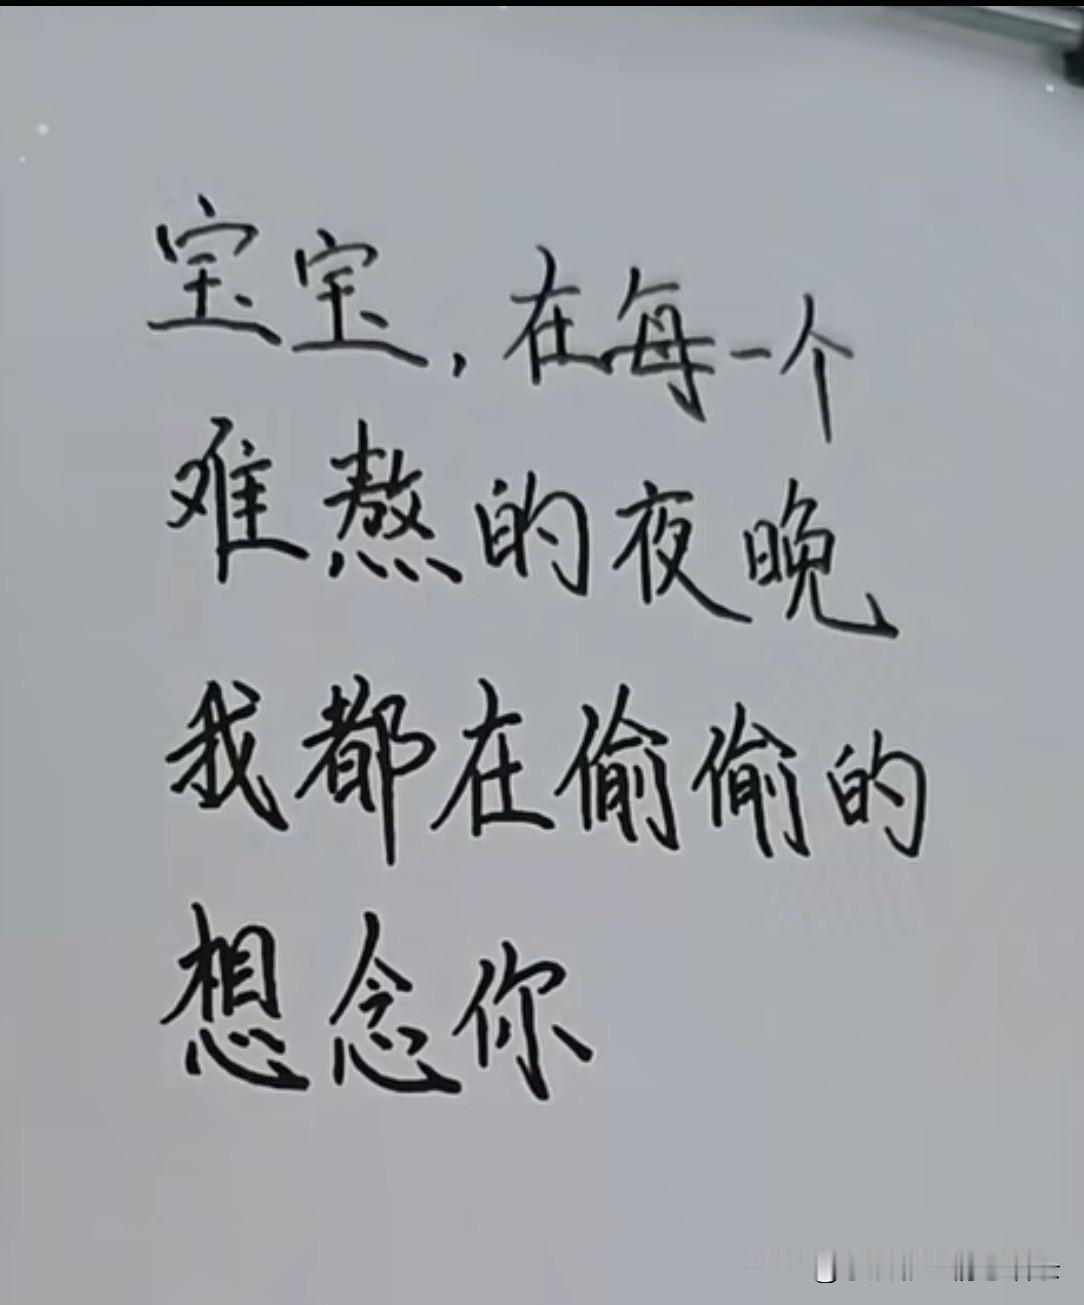 宝宝,在每一个
难熬的夜晚
我都在偷偷的
想念你